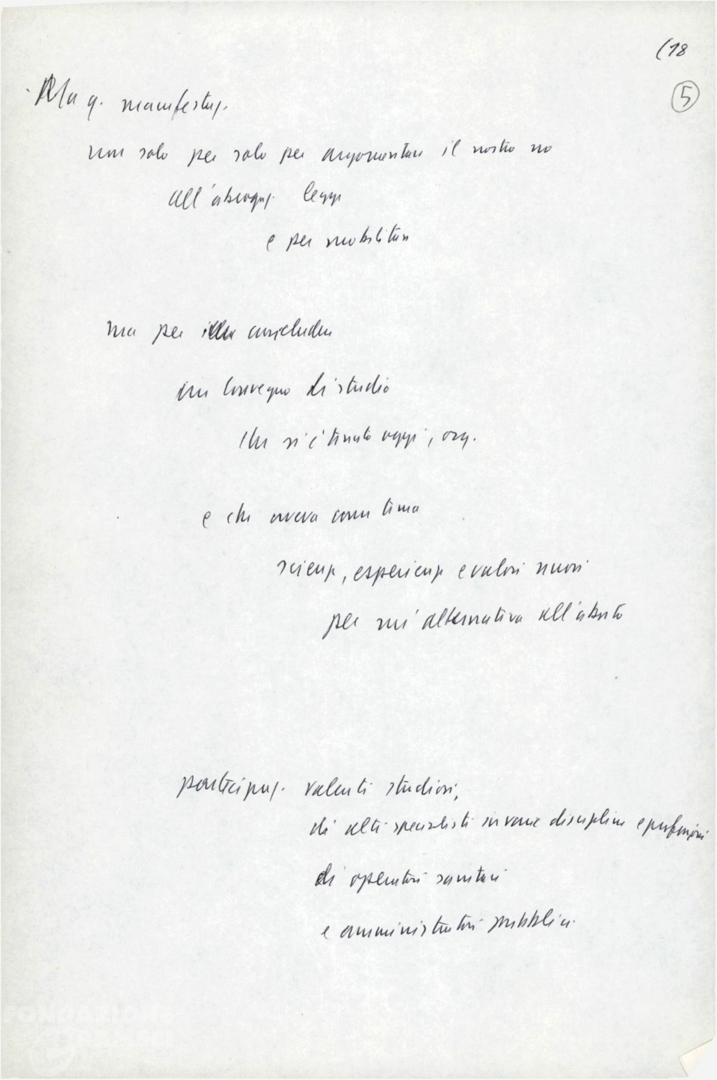 (18
5
Ma q. manifestaz.
non solo per solo per argomentare il nostro no
all'abrogaz. leggi
e per mobilitare
ma per concludere
un convegno di studio
che si è tenuto oggi, org.
e che aveva come tema
scienza, esperienza e valori nuovi
per un'alternativa all'aborto
partecipaz. valenti studiosi,
di alti specialisti in varie discipline e professioni
di operatori sanitari
e amministratori pubblici
FONDAZIONE